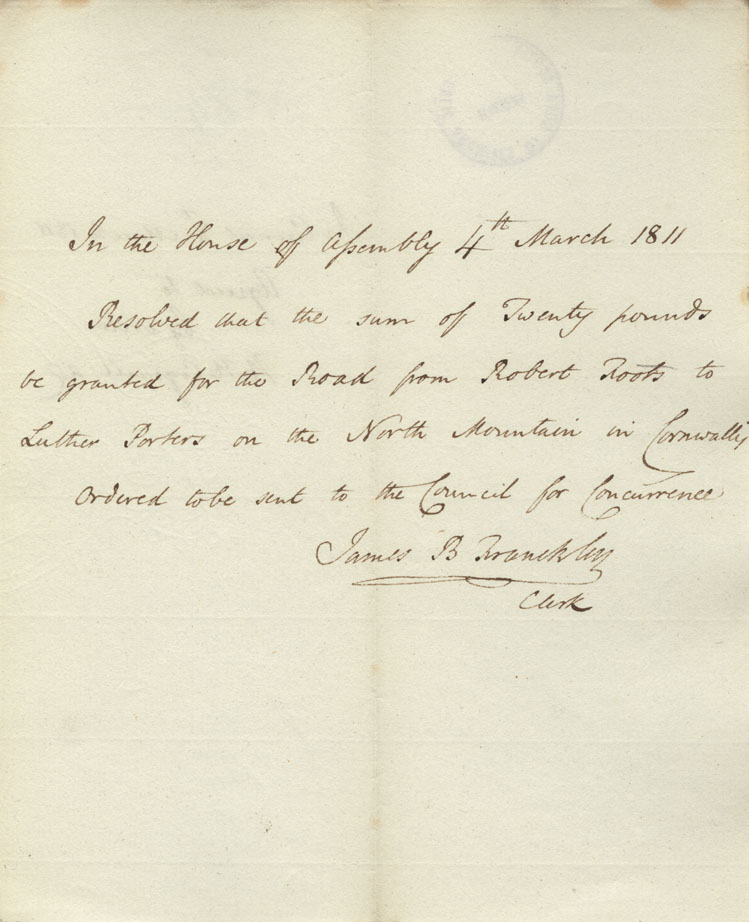 In the House of Assembly 4th March 1811
Resolved that the sum of Twenty pounds
be granted for the Road from Robert Roots to
Luther Porters on the North Mountain in Cornwallis
Ordered to be sent to the Council for Concurrence
James B Franckly
Clerk